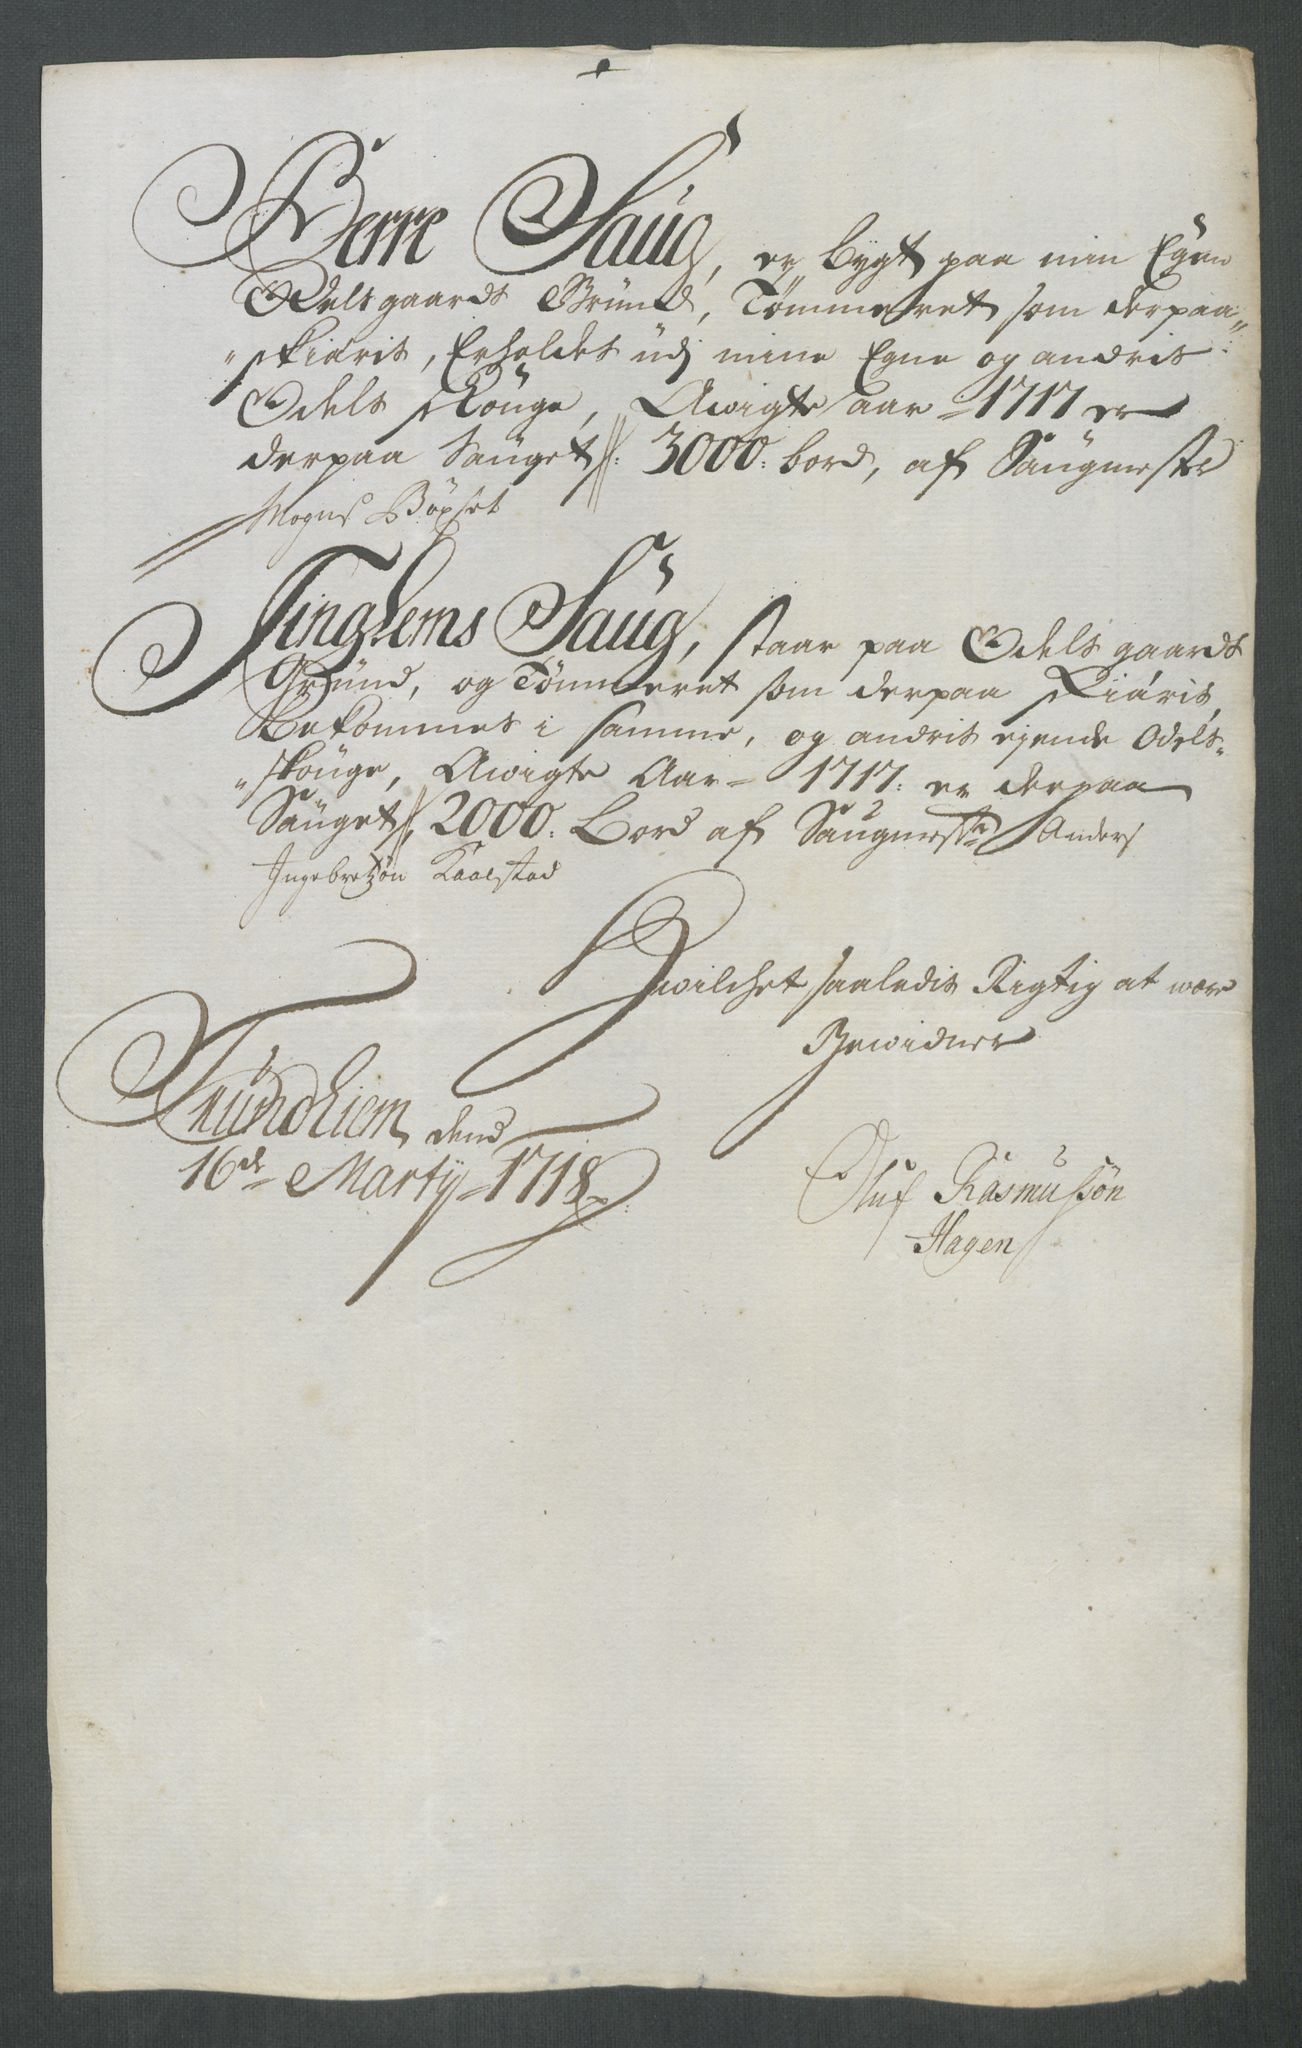 Berre Saug, er bygt paa min Egen
Odelsgaardz Gründ, Tømmeret som derpaa„
„skiæris, Erholdes udj mine Egne og andris
Odels skouge, Awigte aar - 1717 er
derpaa Sauget //: 3000: bord, af Saugmester
Mogens
Tinglems Saug, staar paa Odels gaardz
Gründ, og Tømmeret som derpaa skiæris,
Bekommes i samme, og andris ejende Odels„
„skouge, Awigte Aar - 1717: er derpaa
Sauget //: 2000: Bord af Saugmestr Anders
Ingebretzøn Kaalstad
Hwilchet saaledis Rigtig at være
Bewidner
Trundhiem dend
16de Martij - 1718
Oluf Rasmussøn
Hagen